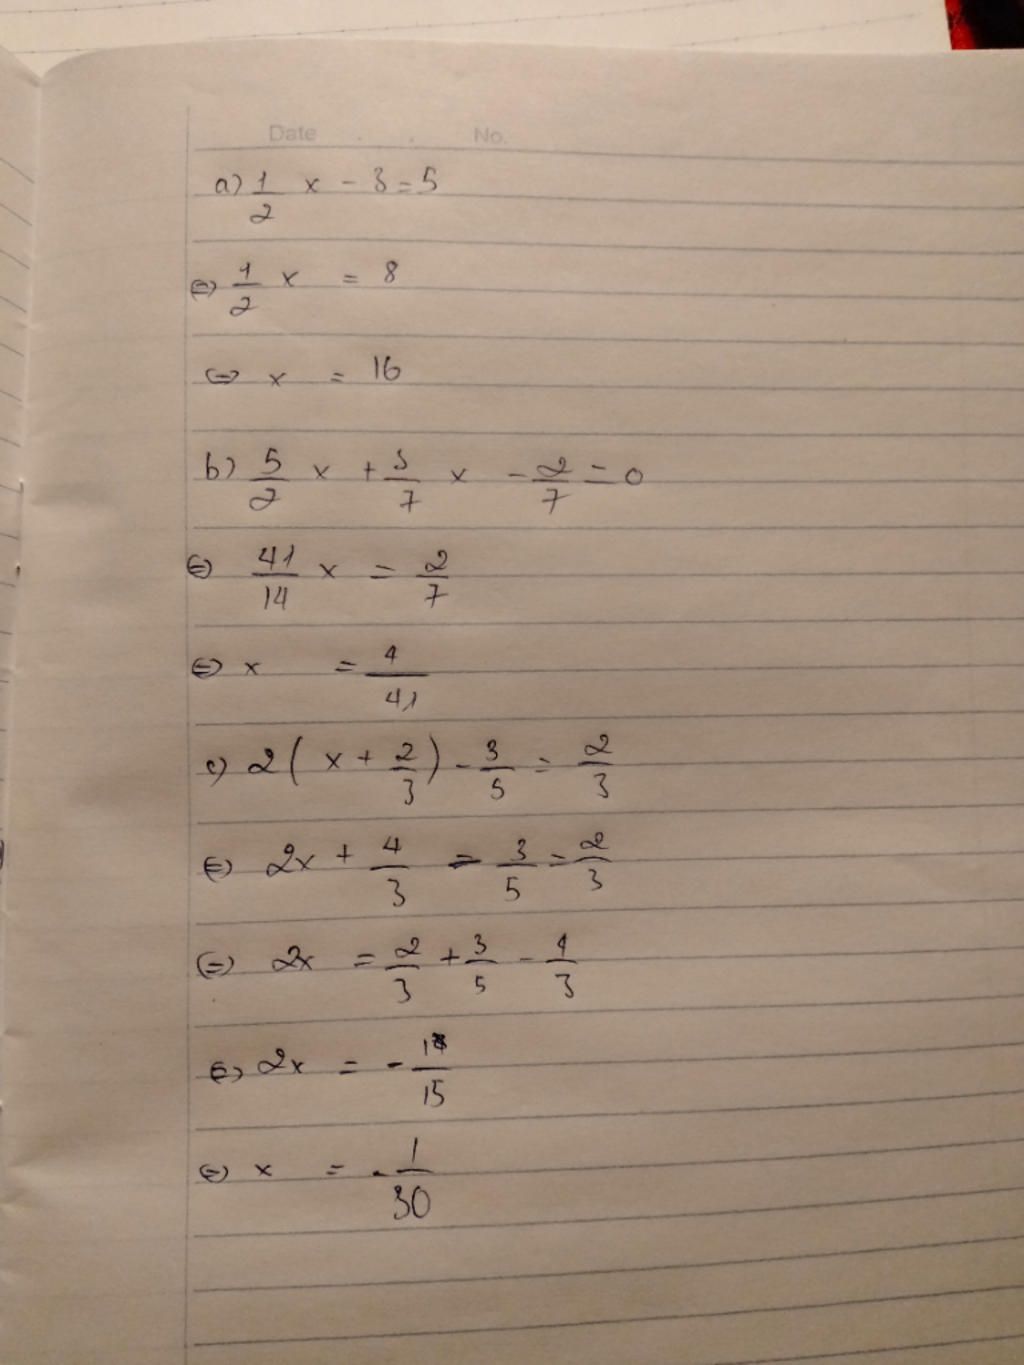 Date . . No.
a) 1/2 x - 3 = 5
⇔ 1/2 x = 8
⇔ x = 16
b) 5/2 x + 3/7 x - 2/7 = 0
⇔ 41/14 x = 2/7
⇔ x = 4/41
c) 2(x + 2/3) - 3/5 = 2/3
⇔ 2x + 4/3 - 3/5 = 2/3
⇔ 2x = 2/3 + 3/5 - 4/3
⇔ 2x = - 1/15
⇔ x = - 1/30